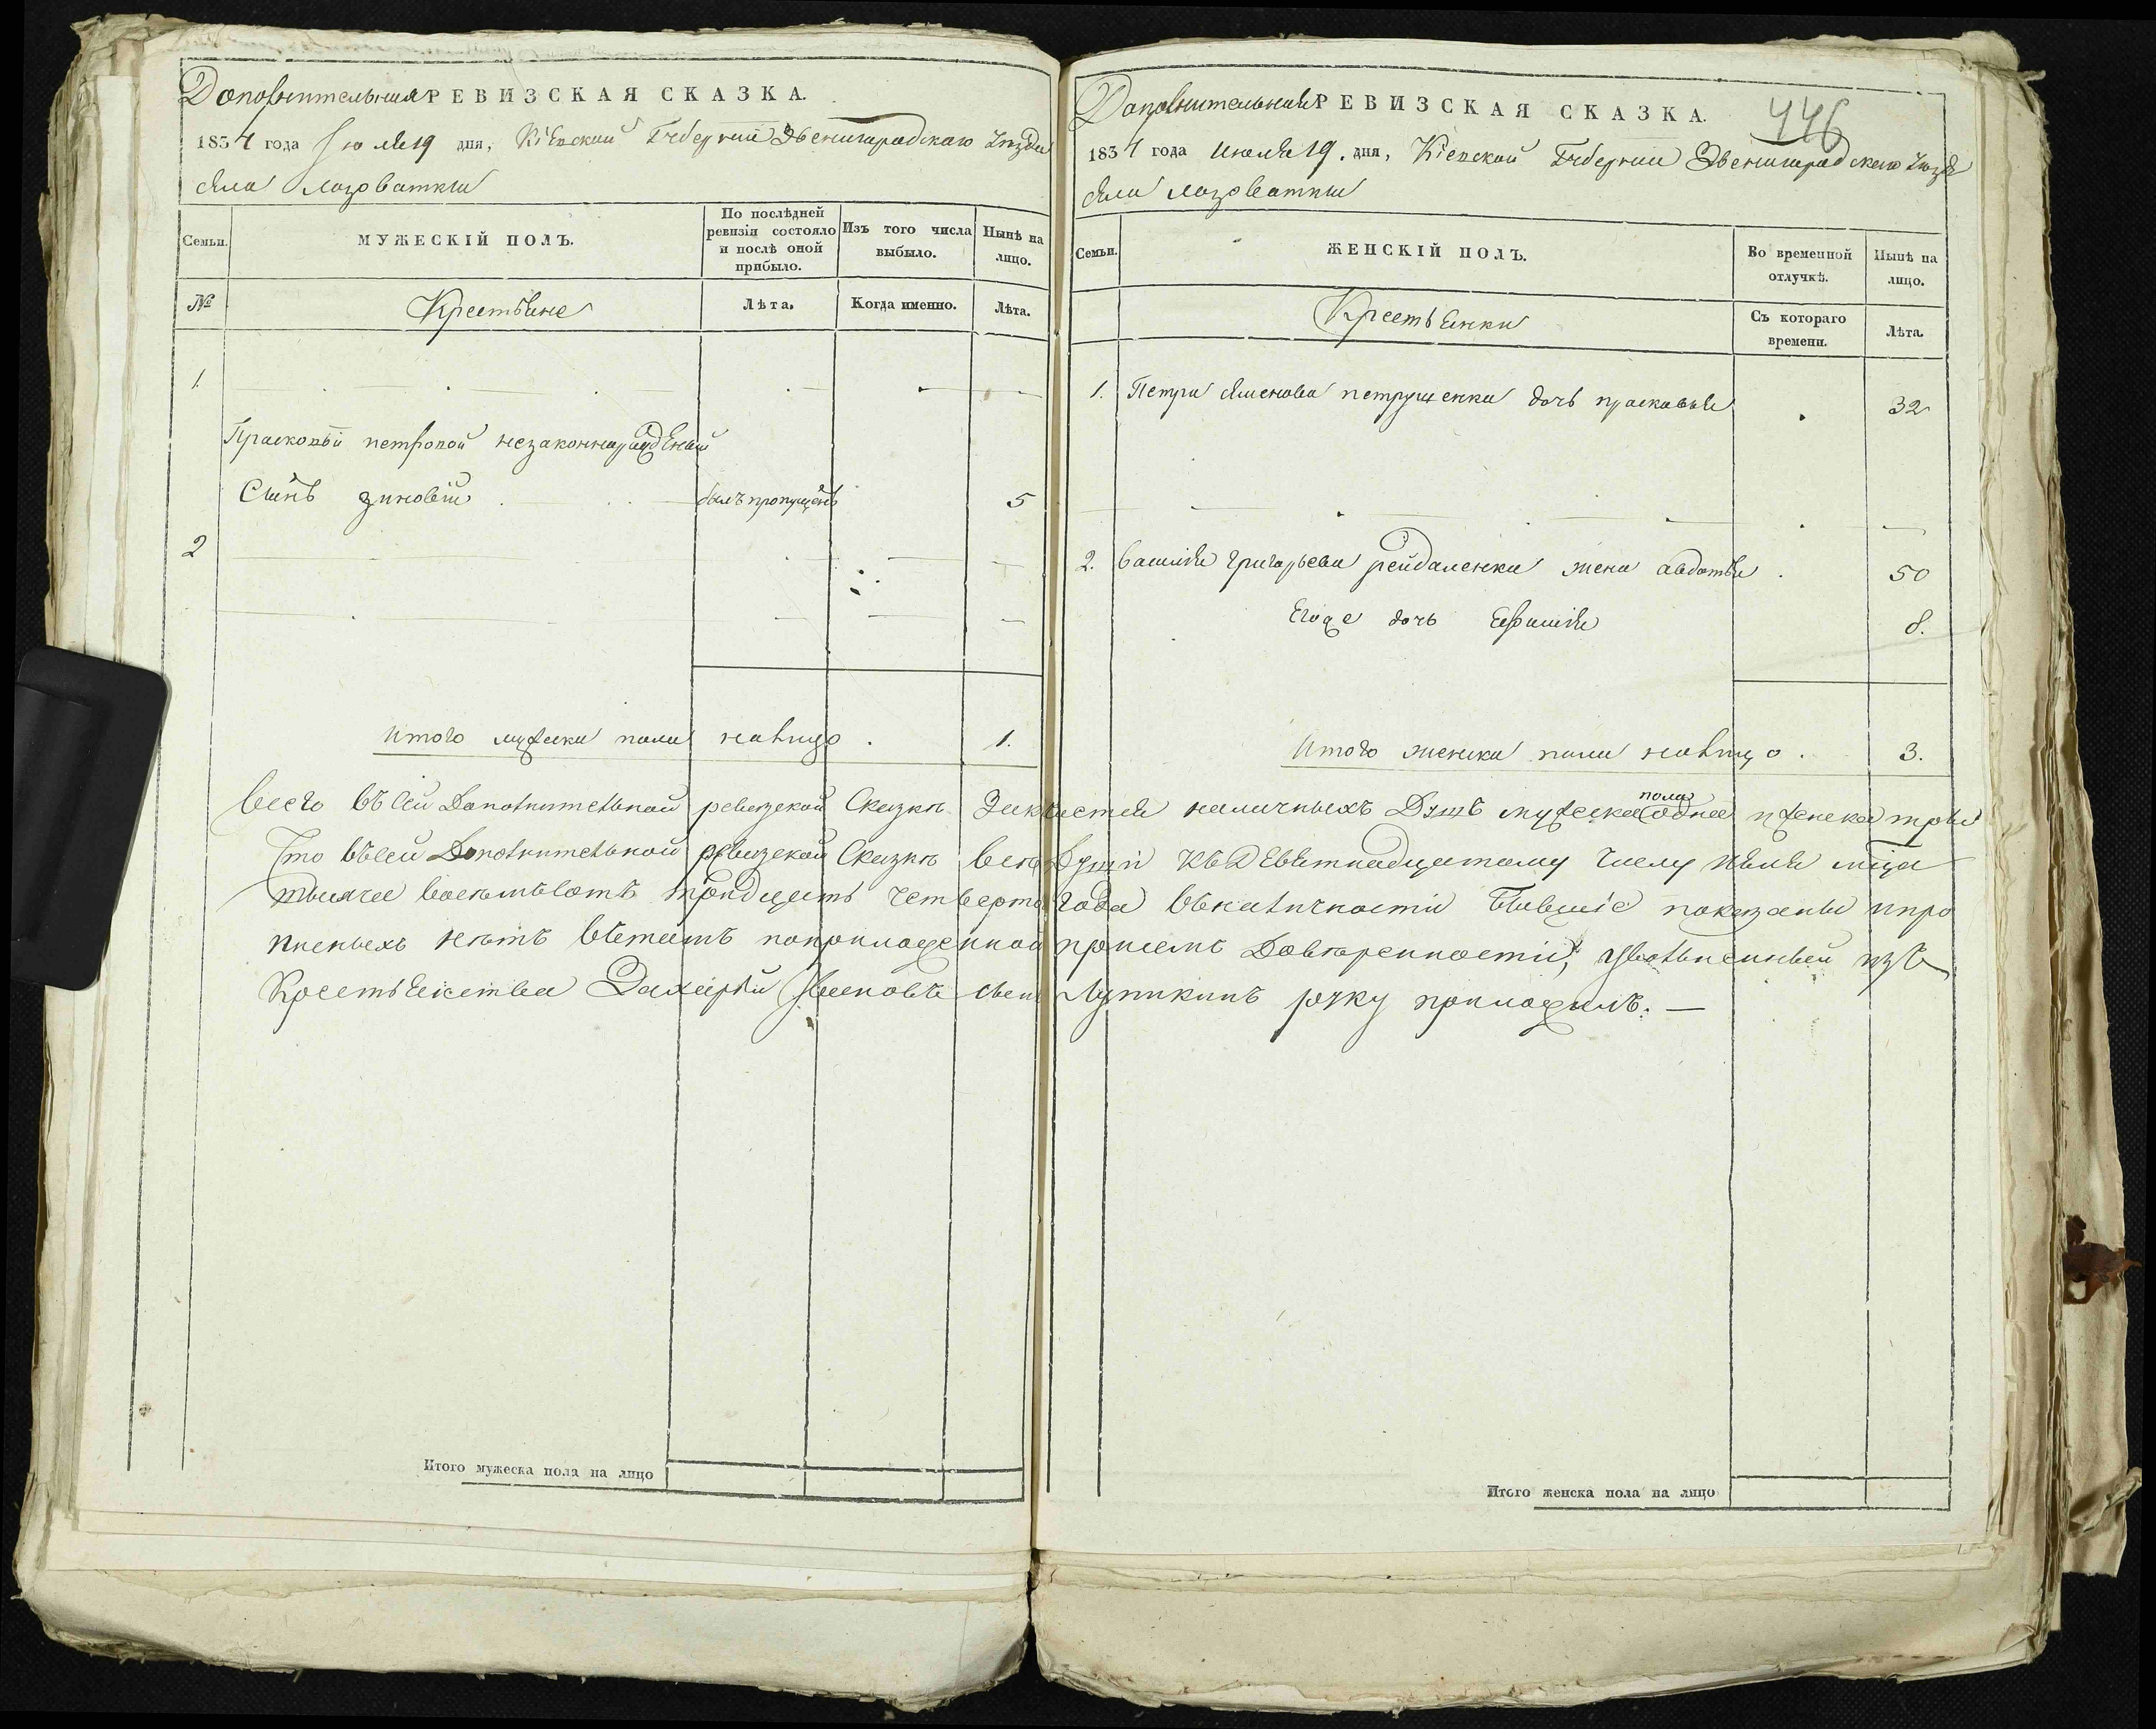 Дополнительная РЕВИЗСКАЯ СКАЗКА.
1834 года Июля 19 дня, Кіевской Губерніи Звенигарадскаго уѣзда
села лазоватки
Семьи.
МУЖЕСКІЙ ПОЛЪ.
По послѣдней ревизіи состояло и послѣ оной прибыло.
Изъ того числа выбыло.
Нынѣ на лицо.
№
Крестьяне
Лѣта.
Когда именно.
Лѣта.
1.
Прасковьи петровой незаконнорожденый
Сынъ зиновій былъ пропущенъ 5
2
итого мужеска пола налицо. 1.
Дополнительная РЕВИЗСКАЯ СКАЗКА.
446
1834 года июля 19. дня, Кіевской Губерніи Звенигарадскаго уѣзда
села лазоватки
Семьи.
ЖЕНСКІЙ ПОЛЪ.
Во временной отлучкѣ.
Нынѣ на лицо.
Крестьянки
Съ котораго времени.
Лѣта.
1. Петра семенова петрушенка дочь прасковья 32
2. василія григорьева жена авдотья 50
Егоже дочь 8.
итого женска пола налицо. 3.
всего въ сей Дополнительной ревизской Сказкѣ наличныхъ Душъ мужеска пола одна и женска три
Что въсей Дополнительной ревизской Сказкѣ всѣ Души къ Девятнадцатому числу июля мѣца
тысяча восемьсотъ тридцать четверто года въналичности бывшіе показаны ипро
писныхъ нѣтъ вътомъ поприложенной присемъ Довѣренности, уволненный изъ
Крестьянства Захарій Ивановъ сынъ руку приложилъ. —
Итого мужеска пола на лицо
Итого женска пола на лицо